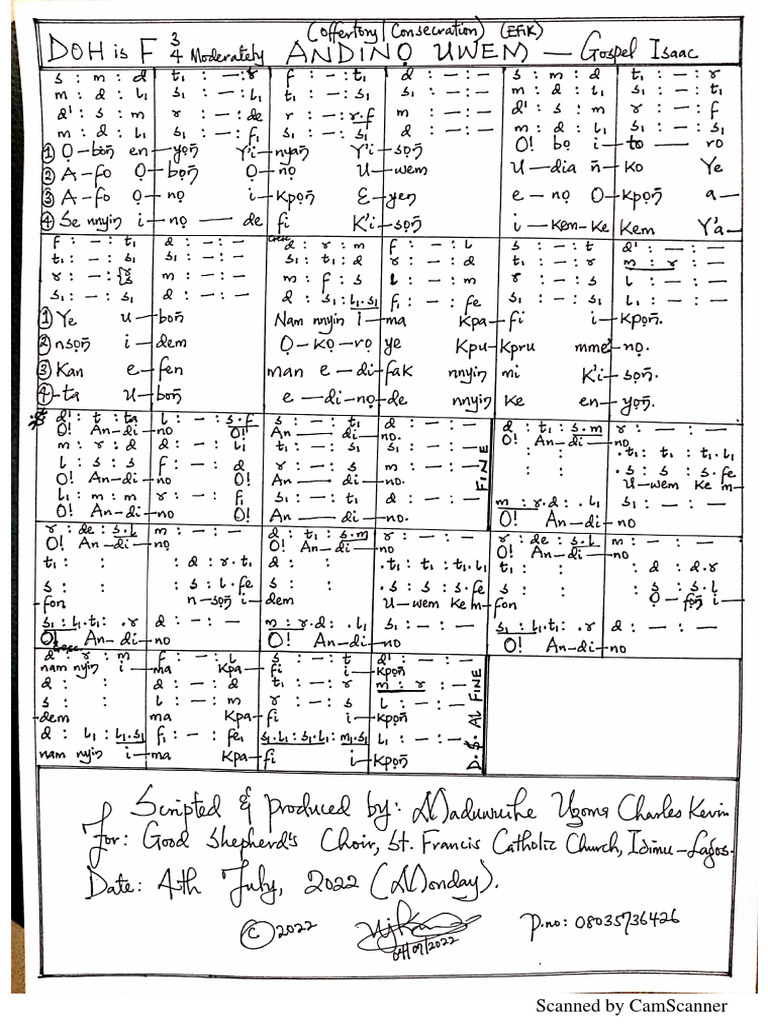 (Offertory/Consecration) (EFIK)
DOH is F 3/4 Moderately ANDINỌ UWEM — Gospel Isaac
s : m : d | t₁ : – : r | f : – : t₁ | d : – : – | s : m : d | t₁ : – : r
m : d : l₁ | s₁ : – : l₁ | t₁ : – : s₁ | s₁ : – : – | m : d : l₁ | s₁ : – : t₁
d' : s : m | r : – : de | r : – : r.f | m : – : – | d' : s : m | r : – : f
m : d : l₁ | s₁ : – : f₁ | s₁ : – : s₁ | d : – : – | m : d : l₁ | s₁ : – : s₁
① Ọ – bọn̄ en – yọn̄ Y'i – nyan̄ Y'i – sọn̄ O! bọ i – to — ro
② A – fo Ọ – bọn̄ Ọ – nọ U – wem U – dia n̄ – ko Ye
③ A – fo Ọ – nọ i – kpọn̄ E – yen e – nọ O – kpọn̄ a –
④ Se nnyin i – nọ — de fi K'i – sọn̄ i – kem – ke kem Y'a –
f : – : t₁ | d : – : – | cresc d : r : m | f : – : l | s : – : t | d' : – : –
t₁ : – : s₁ | s₁ : – : – | s₁ : t₁ : d | r : – : d | t₁ : – : r | m : r : –
r : – : | m : – : – | m : f : s | l : – : m | r : – : s | l : – : –
s₁ : – : s₁ | d : – : – | d : s₁ : l₁.s₁ | f₁ : – : fe | s₁ : – : s₁ | l₁ : – : –
① Ye u – bọn̄ Nam nnyin i – ma kpa – fi i – kpọn̄.
② nsọn̄ i – dem Ọ – kọ – rọ ye kpu – kpru mme – nọ.
③ kan e – fen man e – di – fak nnyin mi K'i – sọn̄.
④ – ta u – bọn̄ e – di – nọ – de nnyin ke en – yọn̄.
d' : t : ta | l : – : s.f | s : – : t₁ | d : – : – | d : t₁ : s.m | r : – : –
O! An – di – no O! An — di – no. O! An – di – no
m : r : d | d : – : l₁ | t₁ : – : s₁ | s₁ : – : – | : : | .t₁ : t₁ : t₁.l₁
l : s : s | f : – : d | r : – : s | m : – : – | : : | .s : s : s.fe
O! An – di – no O! An — di – no. U – wem ke m –
l₁ : m : m | r : – : f₁ | s₁ : – : t₁ | d : – : – | m : r.d : .l₁ | s₁ : – : –
O! An – di – no O! An — di – no. O! An – di – no
FINE
r : de : s.l | m : – : – | d : t₁ : s.m | r : – : – | r : de : s.l | m : – : –
O! An – di – nọ O! An – di – no O! An – di – no
t₁ : : | : d : r.t₁ | : : | .t₁ : t₁ : t₁.l₁ | t₁ : : | : d : d.r
s : : | : s : l.fe | s : : | .s : s : s.fe | s : : | : s : s.l
– fon n – sọn̄ i – dem U – wem ke m – fon Ọ – fọn̄ i –
s₁ : l₁.t₁ : .r | d : – : – | m : r.d : .l₁ | s₁ : – : – | s₁ : l₁.t₁ : .r | d : – : –
O! An – di – no O! An – di – no O! An – di – no
d : r : m | f : – : l | s : – : t | d' : – : –
nam nyin i – ma kpa – fi i – kpọn̄
d : : | d : – : d | t₁ : – : r | m : r : –
s : : | l : – : m | r : – : s | l : – : –
– dem ma kpa – fi i – kpọn̄
d : l₁ : l₁.s₁ | f₁ : – : fe₁ | s₁.l₁ : s₁.l₁ : m₁.s₁ | l₁ : – : –
nam nyin i – ma kpa – fi i – kpọn̄
D.S. Al FINE
Scripted & produced by: Maduwuihe Ugoma Charles Kevin
For: Good Shepherd's Choir, St. Francis Catholic Church, Idimu – Lagos.
Date: 4th July, 2022 (Monday).
© 2022
04/07/2022
P.no: 08035736426
Scanned by CamScanner